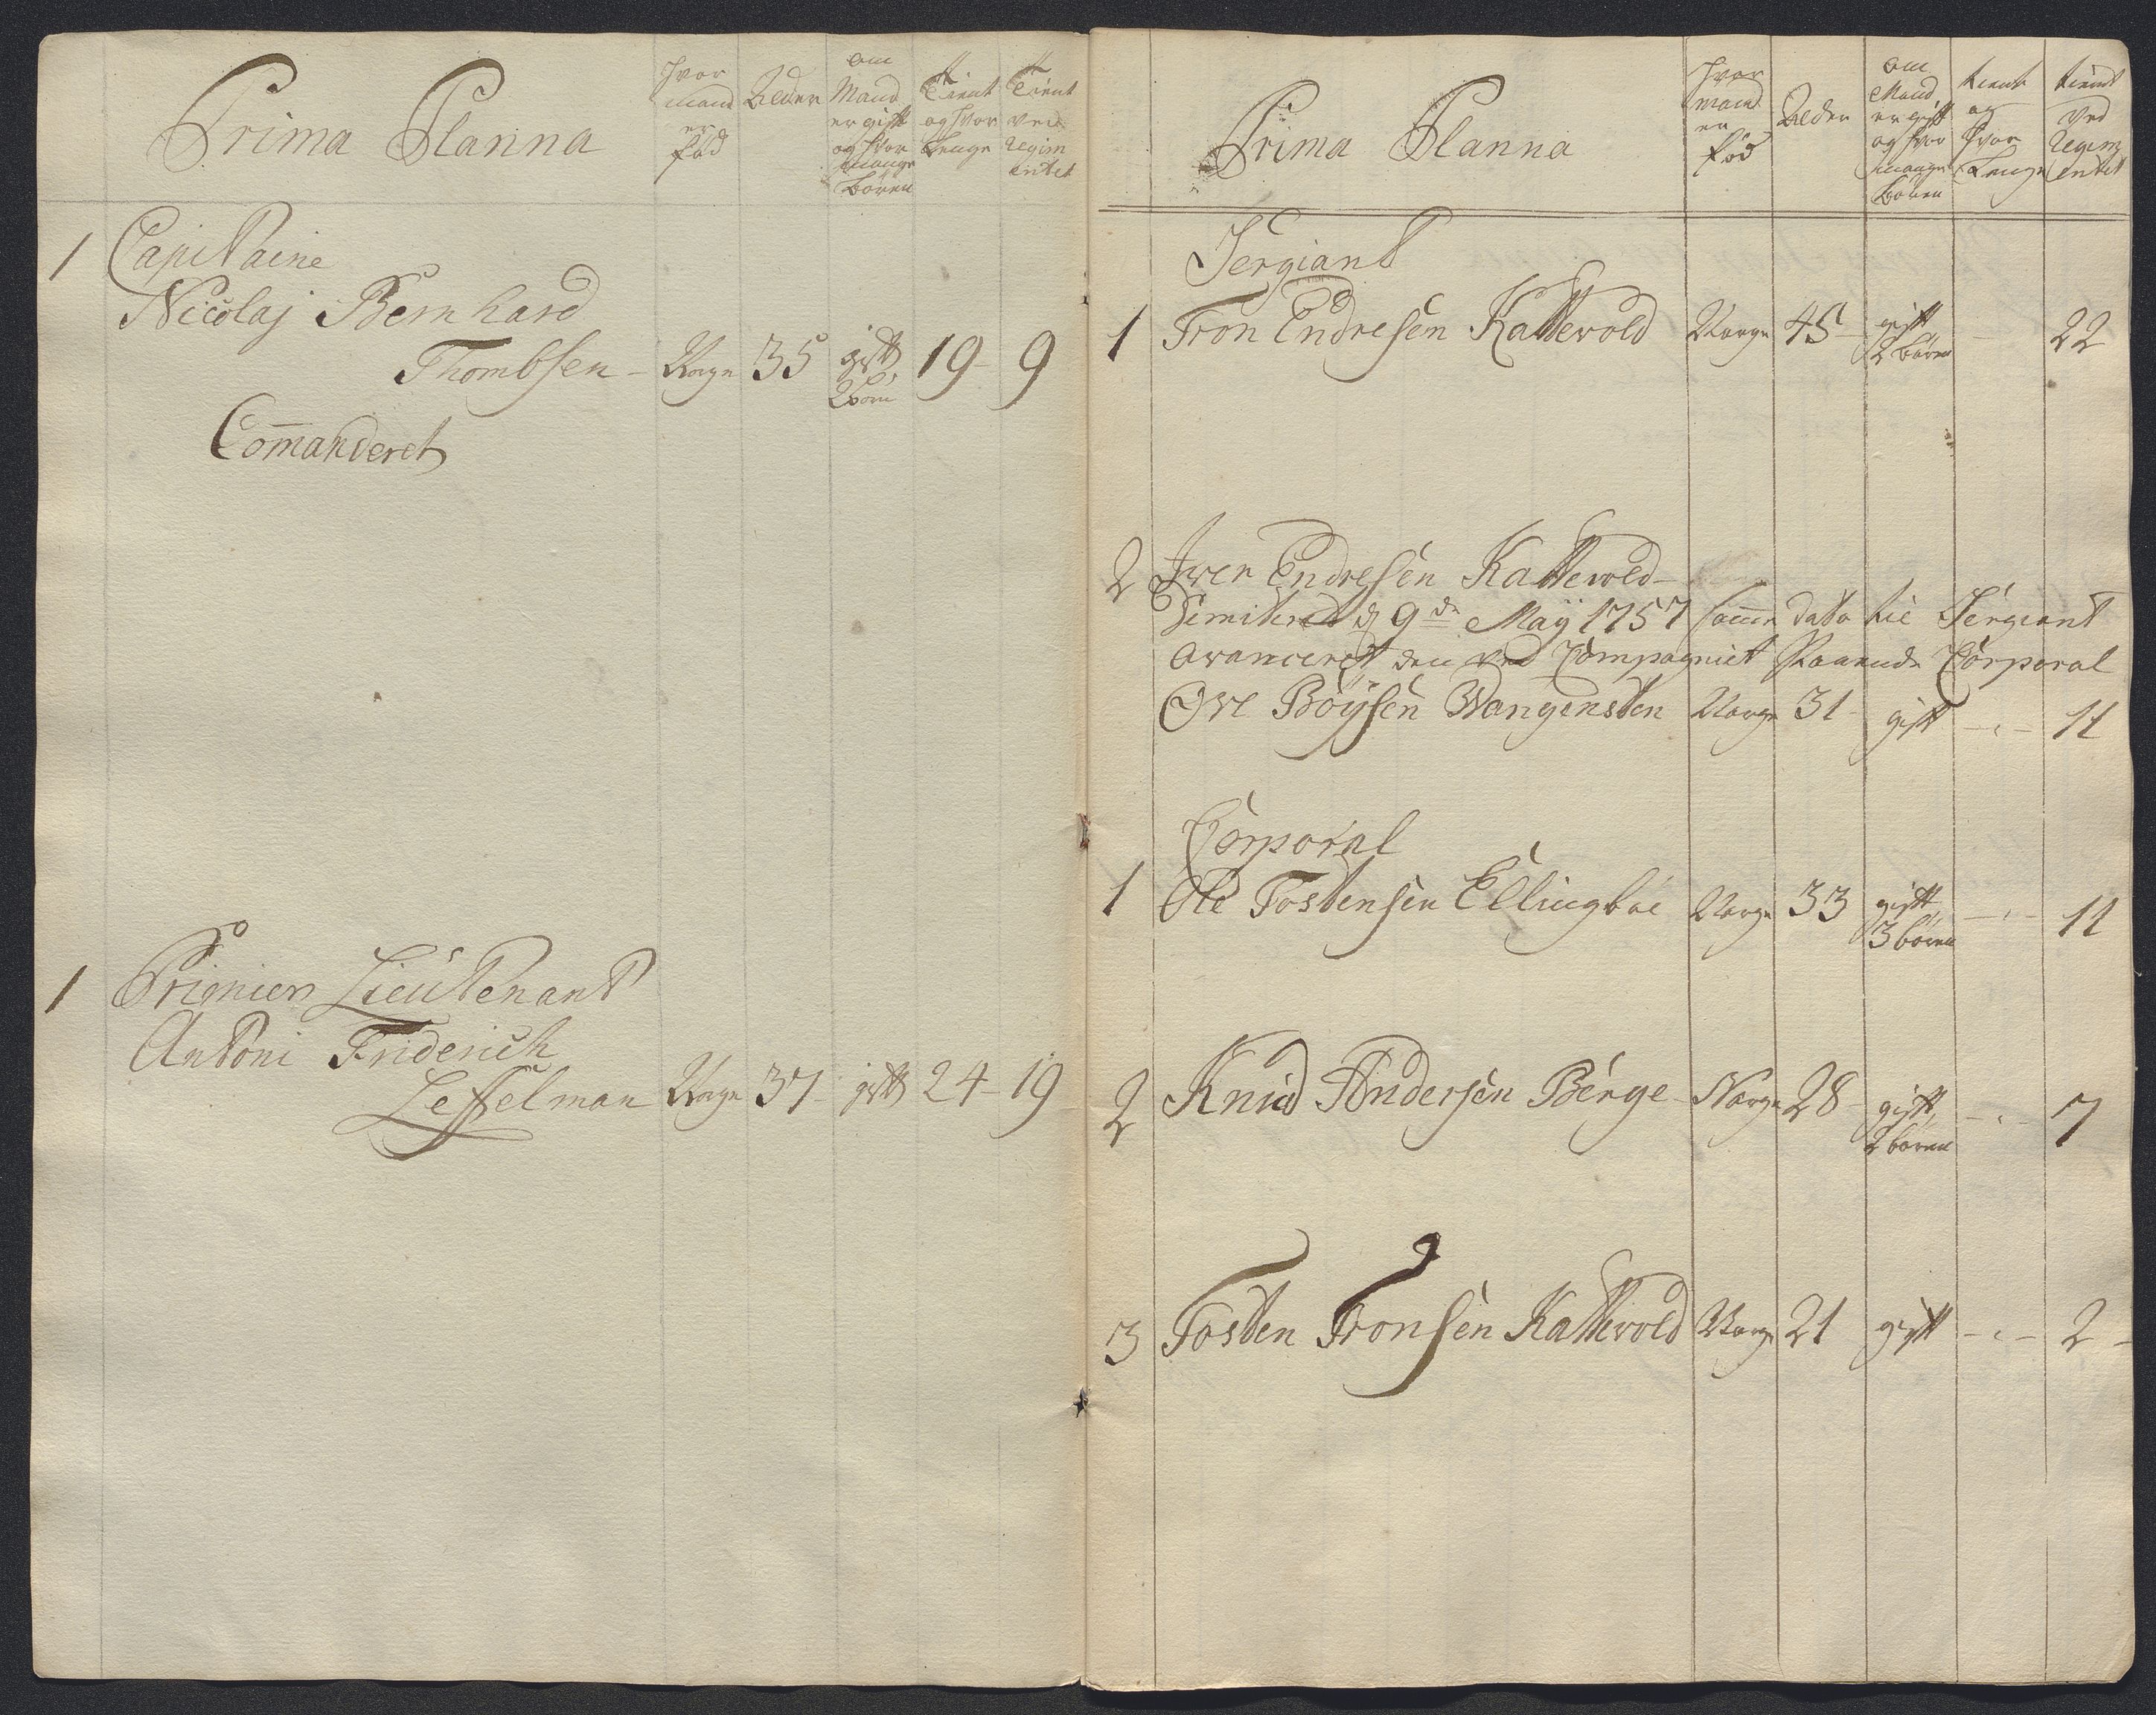 Prima Planna
hvor mand er fød
Alder
om Mand er gift og hvor mange Børen
Tient og hvor Lenge
Tient ved Regimentet
1 Capitaine
Nicolaj Bernhard
Thombsen - Norge 35 gift 2 børn 19 - 9
Com̄anderet
1 Primier Lieutenant
Antoni Friderich
Leffelman Norge 37 - gift 24 - 19
Prima Planna
hvor mand er fød
Alder
om Mand er gift og hvor mange Børen
tient og hvor Lenge
tient ved Regimentet
Sergiant
1 Tron Endresen Kattevold Norge 45 - gift 2 børen - 22
2 Iver Endresen Kattevold -
Dimiteret d 9de Maÿ 1757 samme dato til Sergiant
Avanceret den ved Compagniet staaende Corporal
Ove Böÿsen Wangensten Norge 31 - gift - " - 11
Corporal
1 Ole Tostensen Ellingbøe Norge 33 gift 3 børen - " - 11
2 Knud Andersen Berge - Norge 28 - gift 2 børen - " - 7
3 Tosten Tronsen Kattevold Norge 21 gift - " - 2 -